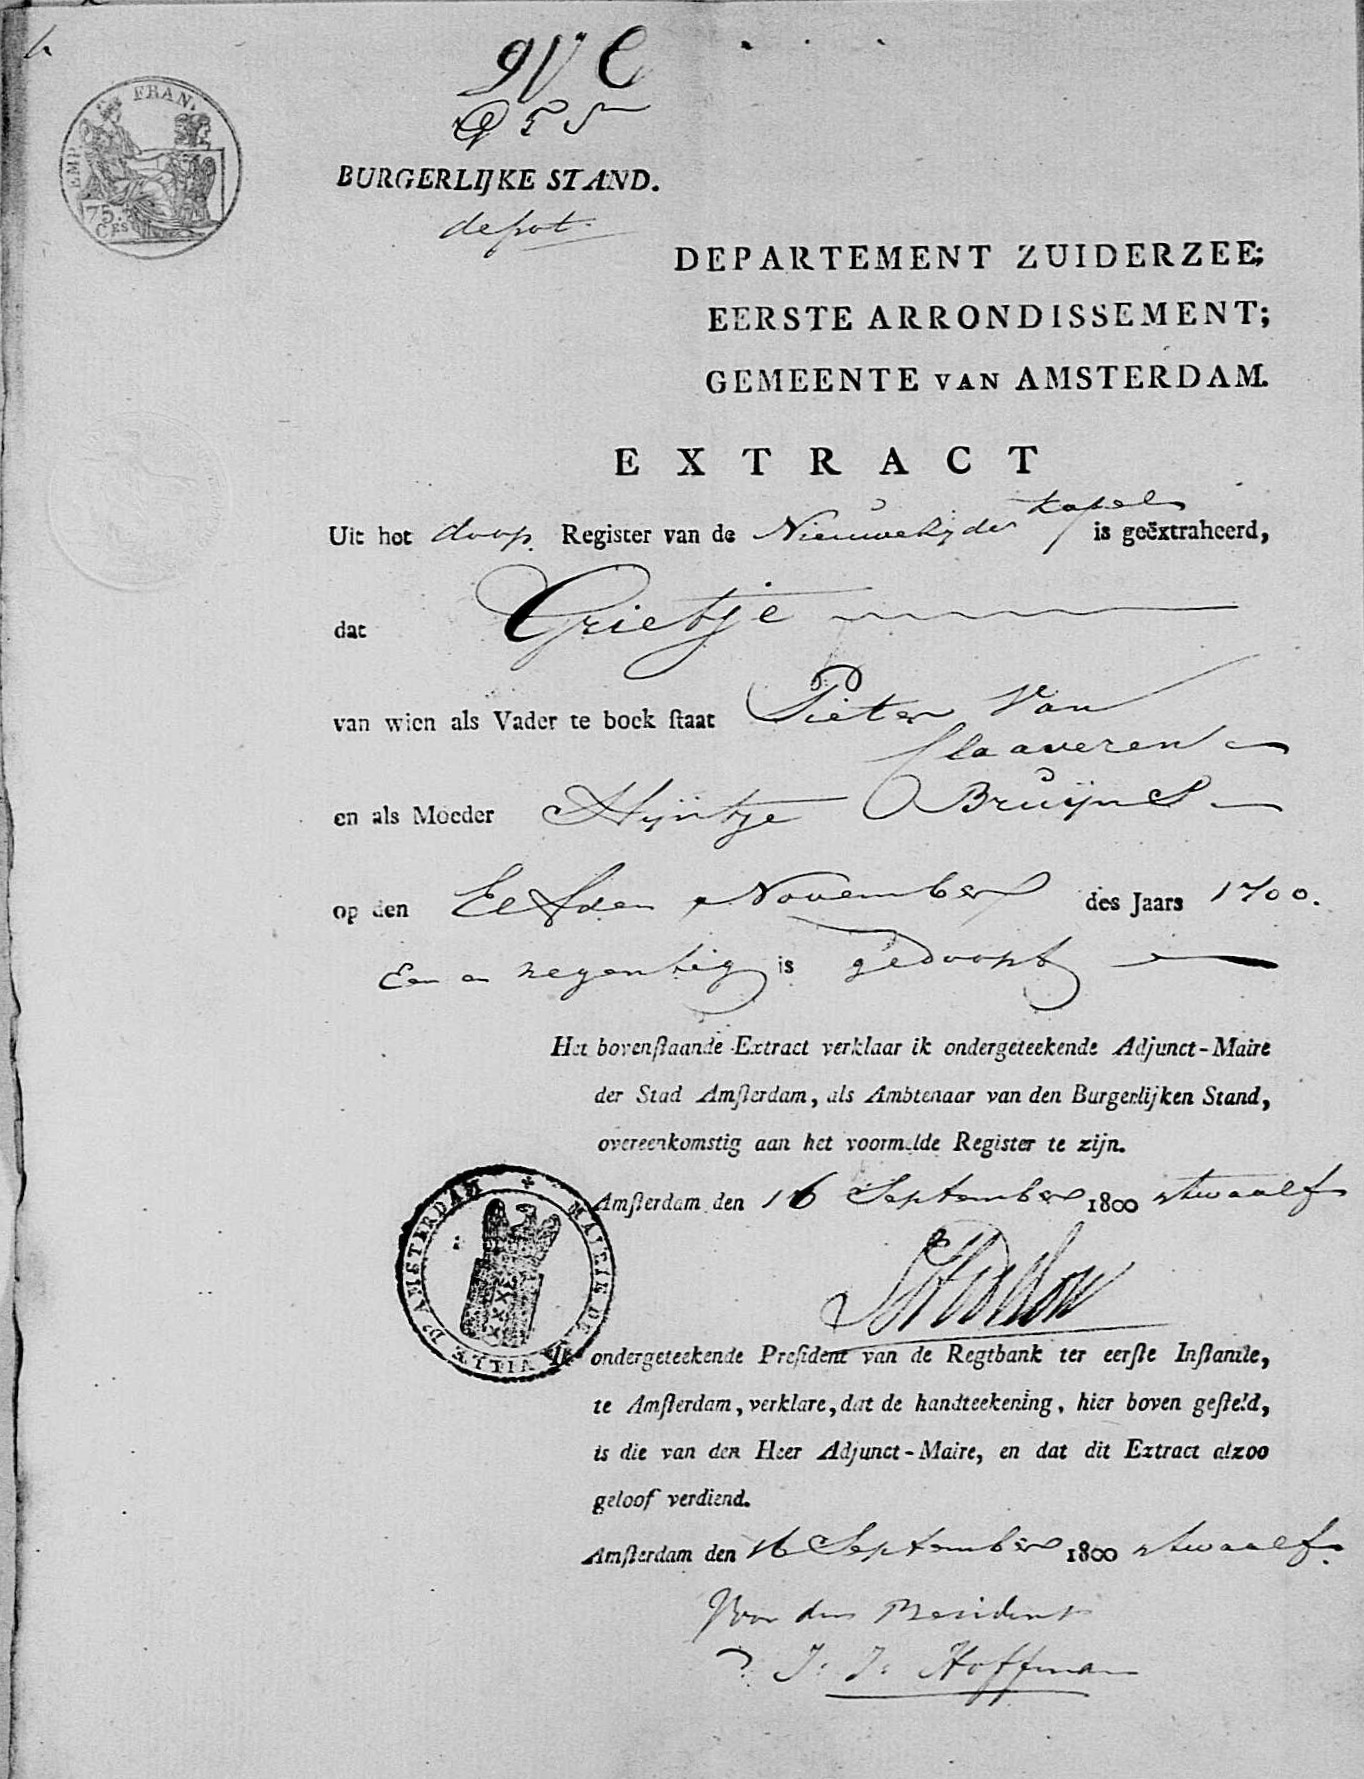 EMP. FRAN.
75.
CES
BURGERLIJKE STAND.
depot.
DEPARTEMENT ZUIDERZEE;
EERSTE ARRONDISSEMENT;
GEMEENTE VAN AMSTERDAM.
EXTRACT
Uit het doop Register van de Nieuwezijder kapel is geëxtraheerd,
dat Grietje
van wien als Vader te boek staat Pieter Van
Claaveren
en als Moeder Hijntje Bruijns
op den Elfden November des Jaars 1700.
Een en negentig is gedoopt
Het bovenstaande Extract verklaar ik ondergeteekende Adjunct-Maire
der Stad Amsterdam, als Ambtenaar van den Burgerlijken Stand,
overeenkomstig aan het voormelde Register te zijn.
Amsterdam den 16 September 1800 twaalf
MAIRIE DE VILLE D'AMSTERDAM
Ik ondergeteekende President van de Regtbank ter eerste Instantie,
te Amsterdam, verklare, dat de handteekening, hier boven gesteld,
is die van den Heer Adjunct-Maire, en dat dit Extract alzoo
geloof verdiend.
Amsterdam den 16 September 1800 twaalf.
Voor den President
J. J. Hoffman